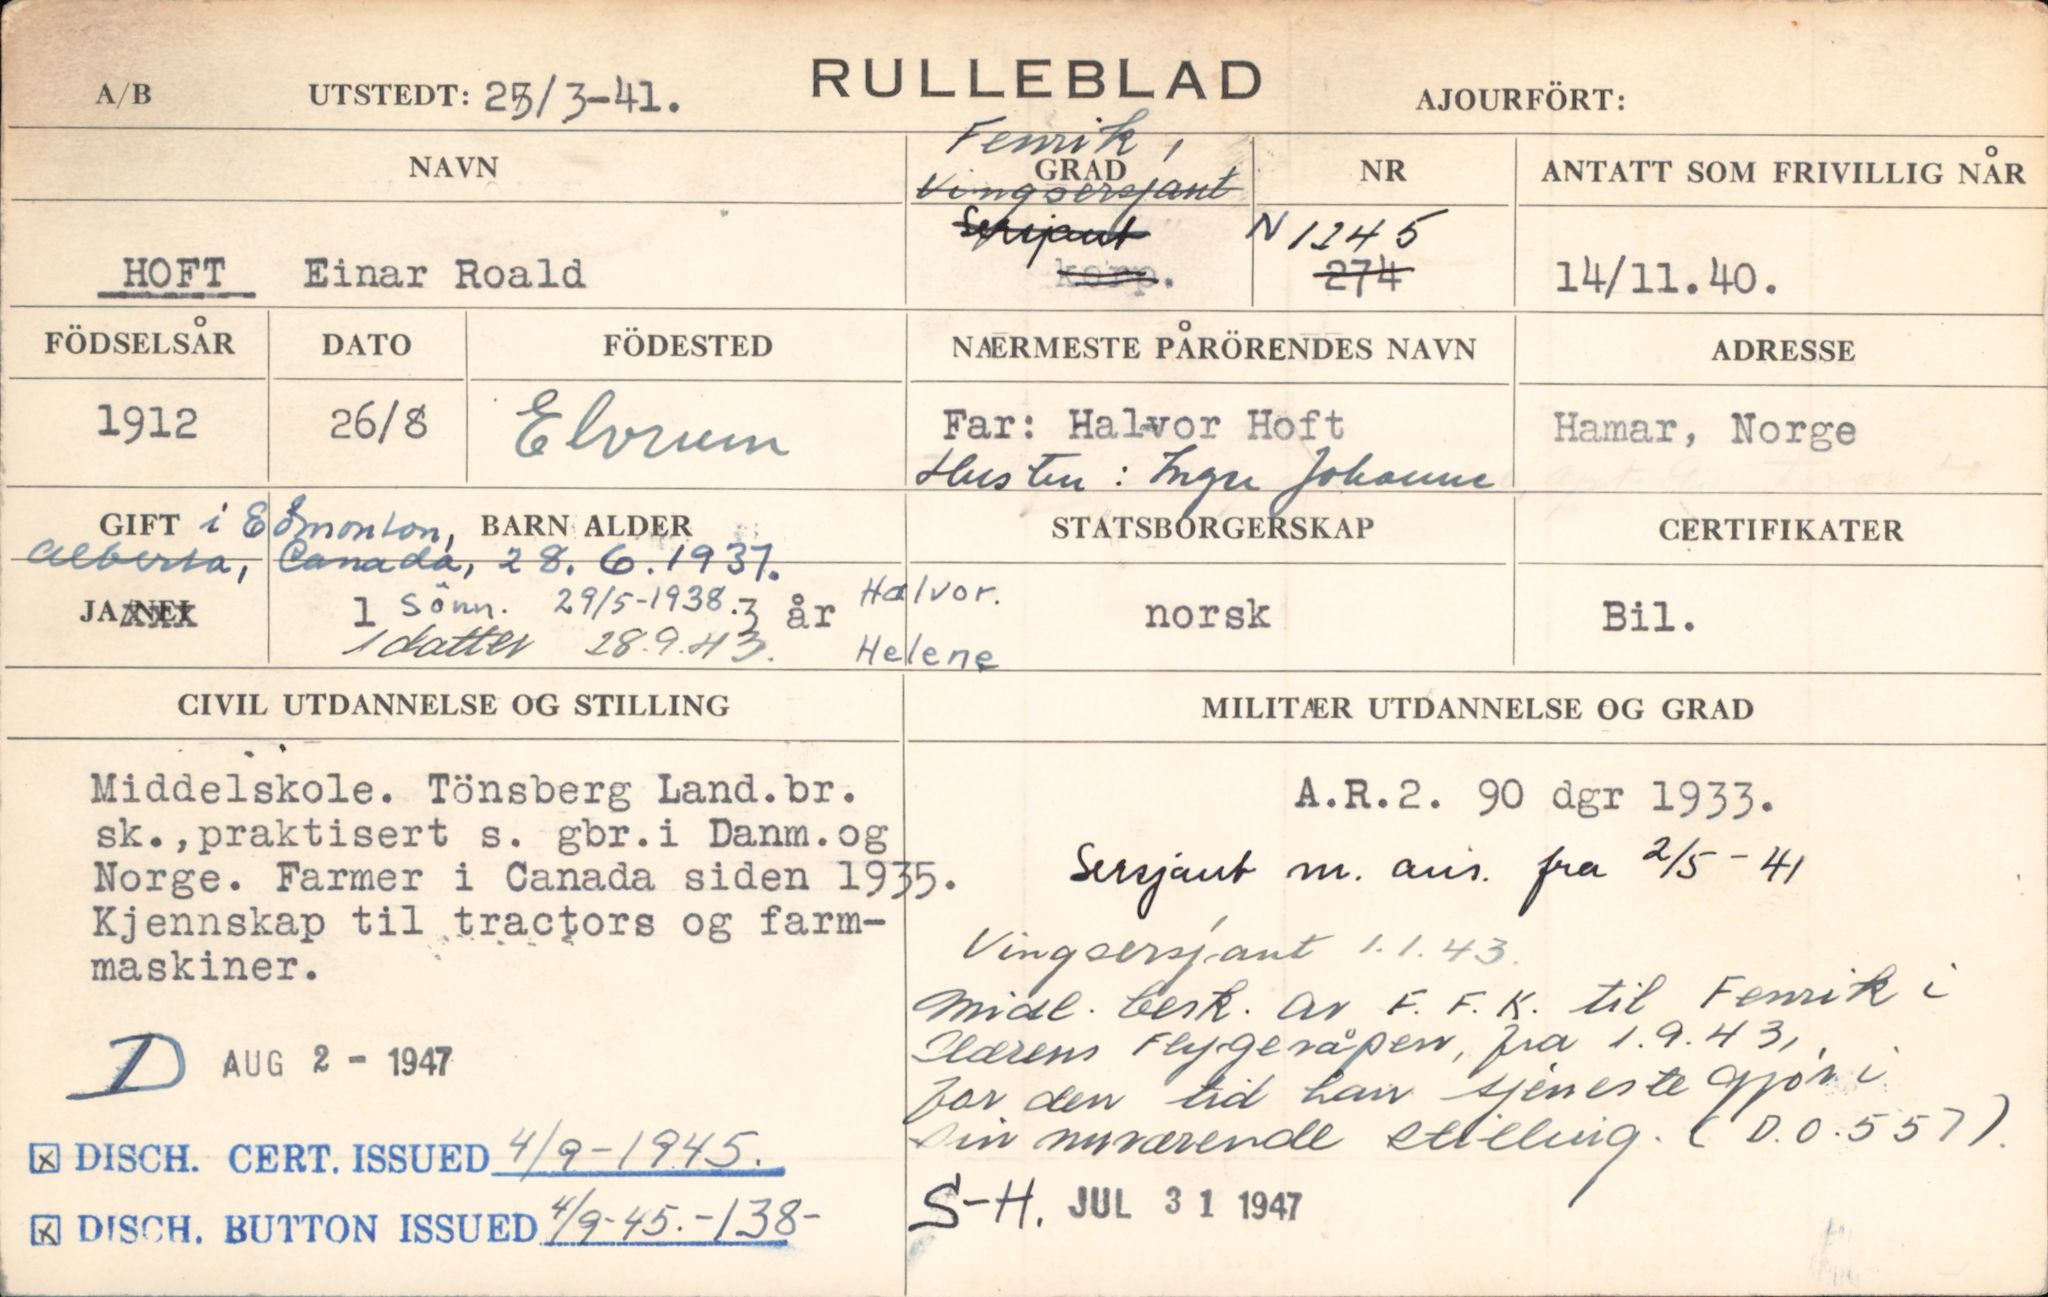 RULLEBLAD
A/B UTSTEDT: 25/3-41. AJOURFÖRT:
Fenrik,
NAVN GRAD NR ANTATT SOM FRIVILLIG NÅR
Vingsersjant
Sersjant N 1245
HOFT Einar Roald korp. 274 14/11.40.
FÖDSELSÅR DATO FÖDESTED NÆRMESTE PÅRÖRENDES NAVN ADRESSE
1912 26/8 Elvrum Far: Halvor Hoft Hamar, Norge
Hustru: Johanne
GIFT i Edmonton, BARN ALDER STATSBORGERSKAP CERTIFIKATER
Alberta, Canada, 28.6.1937.
JA/NEI 1 Sönn. 29/5-1938. 3 år Halvor. norsk Bil.
1 datter 28.9.43. Helene
CIVIL UTDANNELSE OG STILLING MILITÆR UTDANNELSE OG GRAD
Middelskole. Tönsberg Land.br.
sk.,praktisert s. gbr.i Danm.og
Norge. Farmer i Canada siden 1935.
Kjennskap til tractors og farm-
maskiner.
A.R.2. 90 dgr 1933.
Sersjant m. ans. fra 2/5-41
Vingsersjant 1.1.43.
Midl. besk. av F.F.K. til Fenrik i
Hærens Flygevåpen, fra 1.9.43,
for den tid han tjeneste gjör i
sin nuværende stilling. (D.O.557).
D AUG 2-1947
DISCH. CERT. ISSUED 4/9-1945.
DISCH. BUTTON ISSUED 4/9-45.-138-
S-H. JUL 31 1947